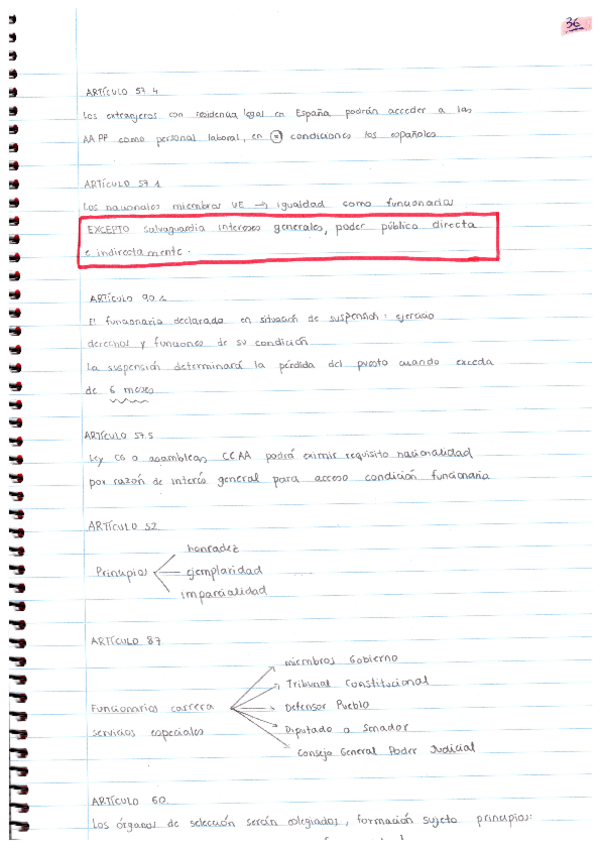 36
ARTÍCULO 57.4
Los extranjeros con residencia legal en España podrán acceder a las
AAPP como personal laboral, en = condiciones los españoles
ARTÍCULO 57.1
Los nacionales miembros UE → igualdad como funcionarios
EXCEPTO salvaguardia intereses generales, poder público directa
e indirectamente.
ARTÍCULO 90.1
El funcionario declarado en situación de suspensión: ejercicio
derechos y funciones de su condición
La suspensión determinará la pérdida del puesto cuando exceda
de 6 meses
ARTÍCULO 57.5
Ley CG o asambleas CCAA podrá eximir requisito nacionalidad
por razón de interés general para acceso condición funcionario
ARTÍCULO 52
honradez
Principios ejemplaridad
imparcialidad
ARTÍCULO 87
miembros Gobierno
Tribunal Constitucional
Funcionarios carrera Defensor Pueblo
servicios especiales Diputado o Senador
Consejo General Poder Judicial
ARTÍCULO 60.
Los órganos de selección serán colegiados, formación sujeto principios: